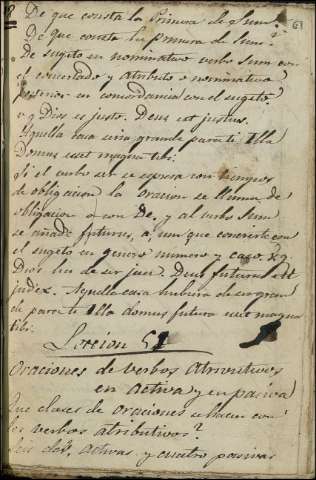 61
De que consta la Primera de Sum?
De que consta la primera de Sum?
De sugeto en nominativo verbo Sum con
el concertado y atributo o nominativo
posterior en concordancia con el sugeto.
v. g. Dios es justo. Deus est justus.
Aquella casa seria grande para ti. Illa
Domus esset magna tibi.
Si el verbo ser se espresa con tiempos
de obligacion la oracion se llama de
obligacion o con De, y al verbo Sum
se añade futurus, a, um que concierte con
el sugeto en genero numero y caso. v. g.
Dios ha de ser juez. Deus futurus est
judex. Aquella casa hubiera de ser gran
de para ti Illa domus futura esset magna
tibi.
Leccion 51
Oraciones de verbos Atributivos
en activa y en pasiva
Que clases de oraciones se hacen con
los verbos atributivos?
Seis dos activas y cuatro pasivas